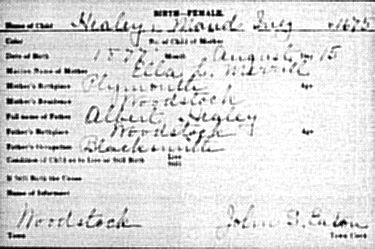 BIRTH—FEMALE.
Name of Child Healey, Maud Inez
Color No. of Child of Mother
Date of Birth 1877 Month August Day 15
Maiden Name of Mother Ella L. Merrill
Mother's Birthplace Plymouth Age
Mother's Residence Woodstock
Full name of Father Albert Healey
Father's Birthplace Woodstock Age
Father's Occupation Blacksmith
Condition of Child as to Live or Still Birth Live
Still
If Still Birth the Cause
Name of Informant
Woodstock John B. Eaton
Town Town Clerk